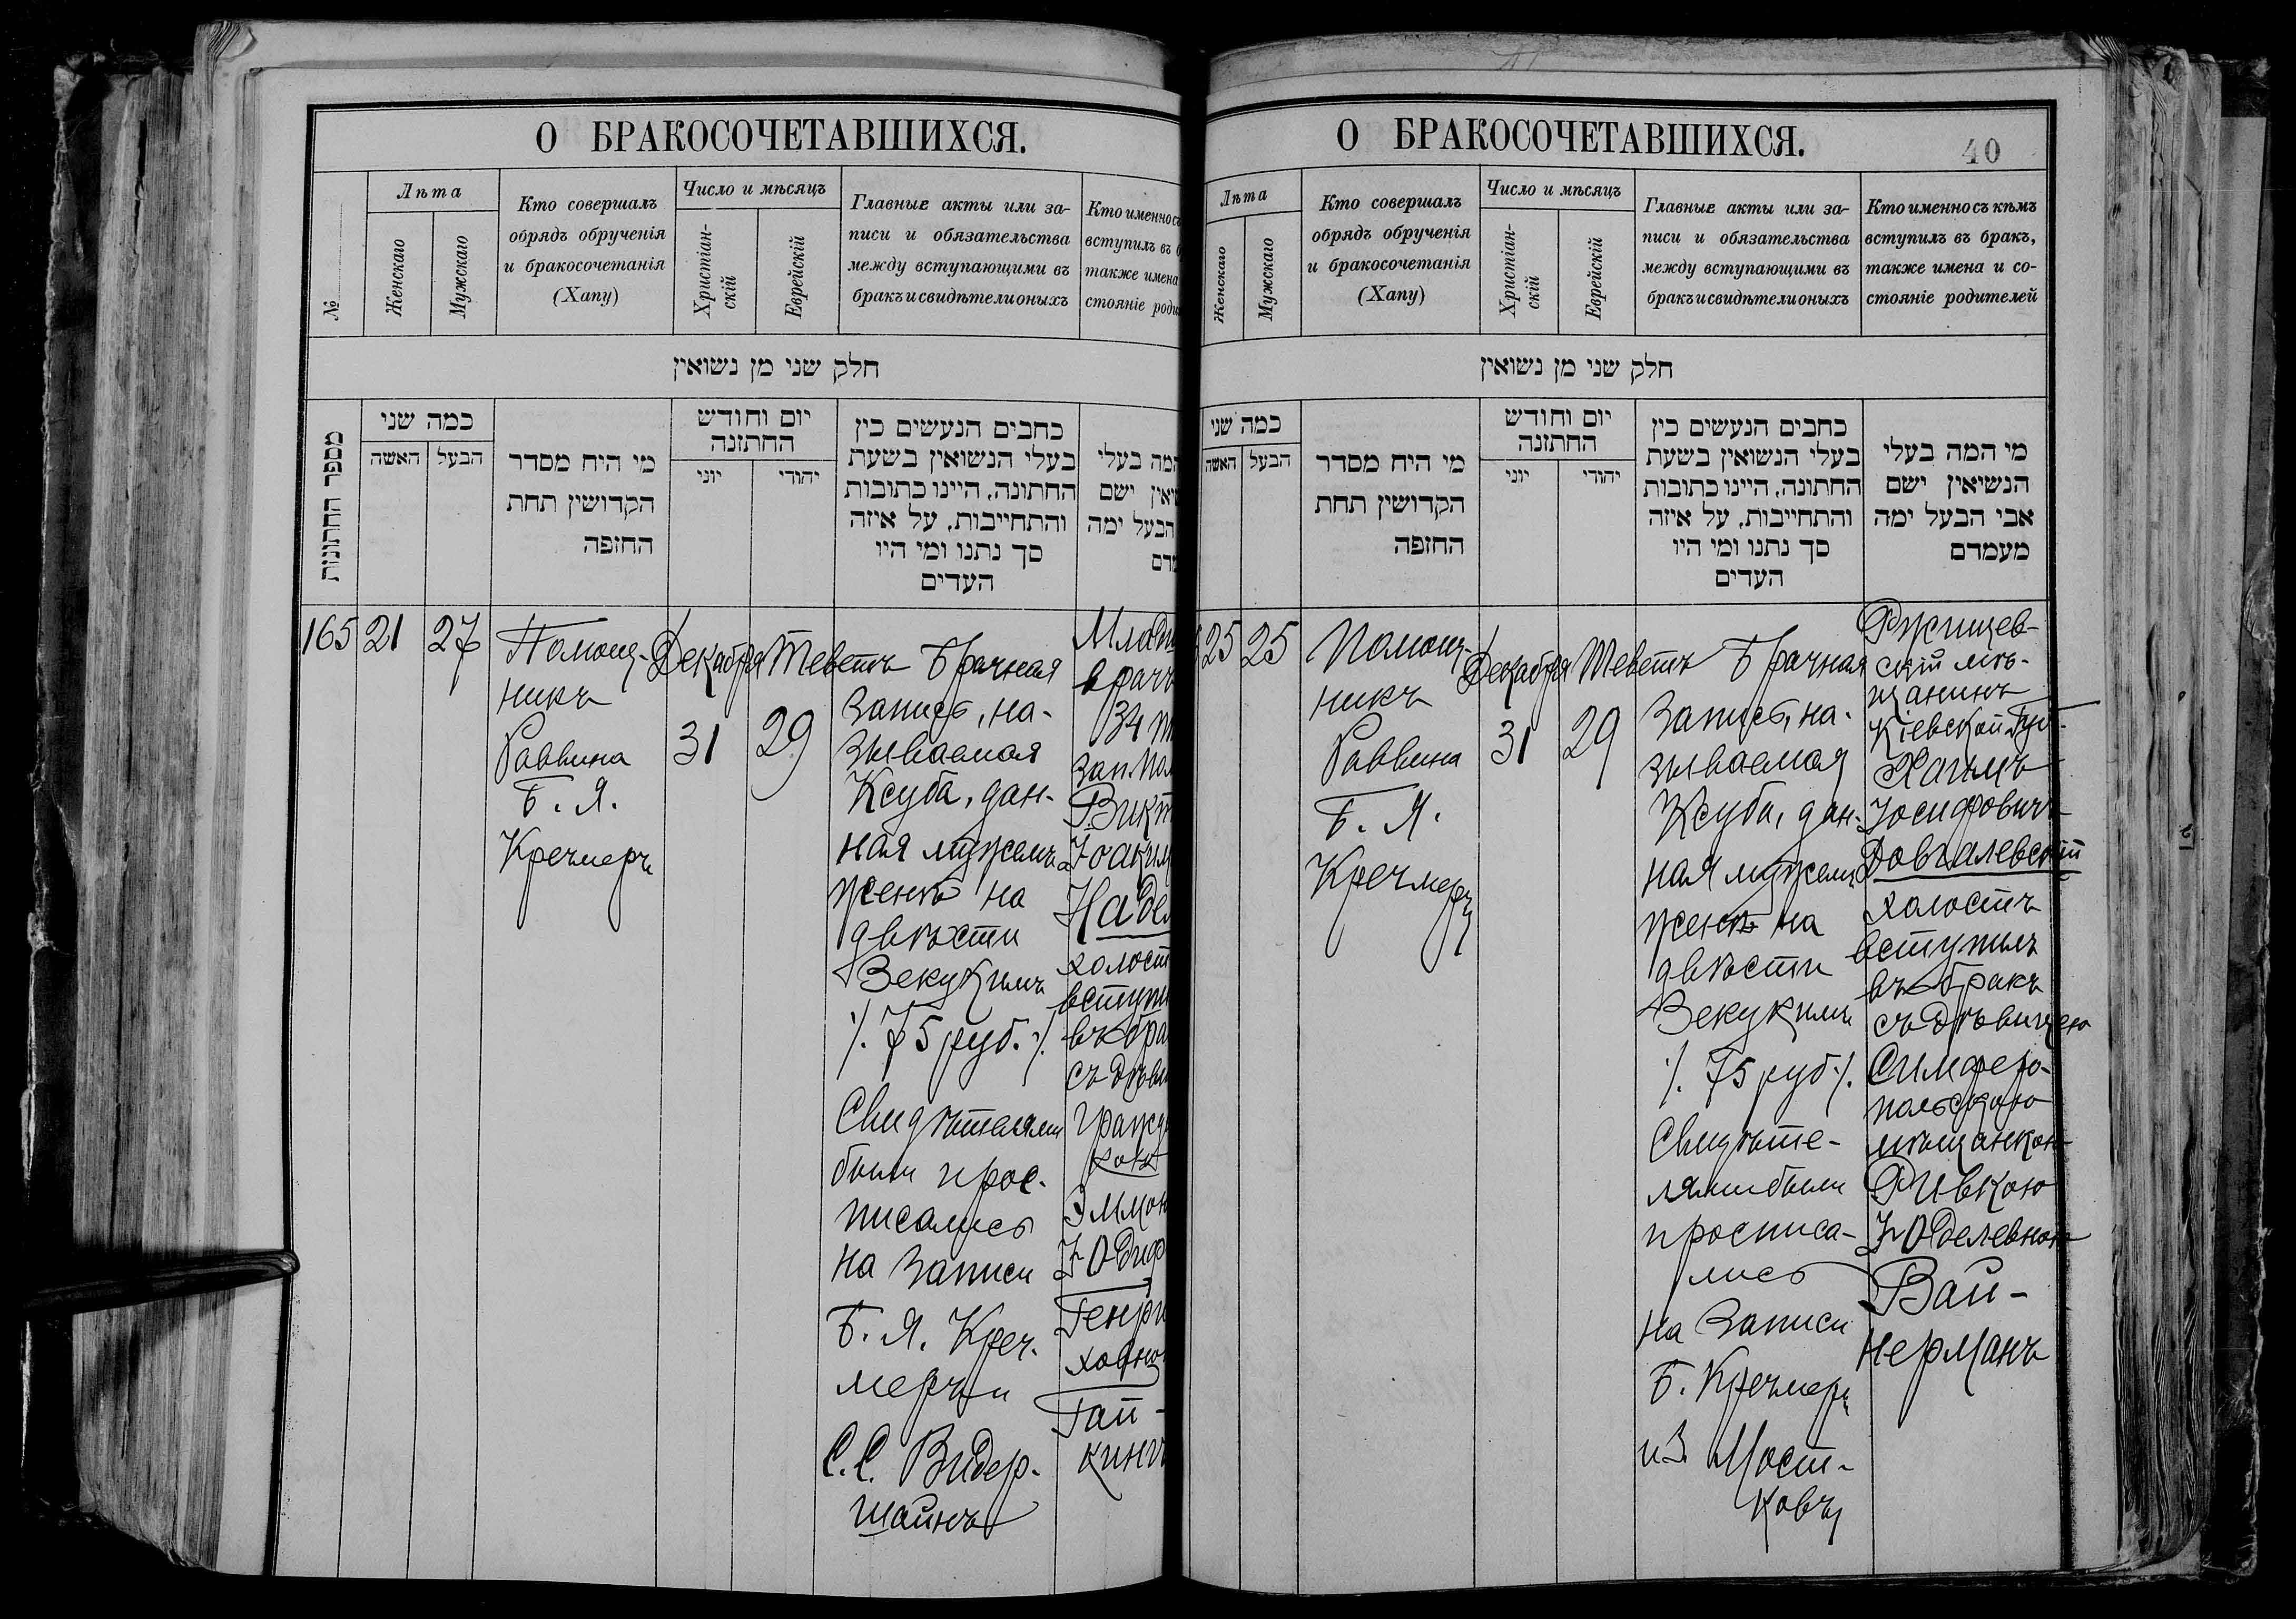 О БРАКОСОЧЕТАВШИХСЯ.
№
Лѣта
Женскаго
Мужскаго
Кто совершалъ
обрядъ обрученія
и бракосочетанія
(Хапу)
Число и мѣсяцъ
Христіан-
скій
Еврейскій
Главные акты или за-
писи и обязательства
между вступающими въ
бракъ и свидѣтели оныхъ
Кто именно съ
вступилъ въ б
также имена
стояніе роди
חלק שני מן נשואין
מספר החתונות
כמה שני
האשה
הבעל
מי היח מסדר
הקדושין תחת
החופה
יום וחודש
החתונה
יוני
יהודי
כחבים הנעשים כין
בעלי הנשואין בשעת
החתונה, היינו כתובות
והתחייבות, על איזה
סך נתנו ומי היו
העדים
המה בעלי
שיאין ישם
הבעל ימה
מדם
165
21
27
Помощ-
никъ
Раввина
Б. Я.
Кречмеръ
Декабря
31
Теветъ
29
Брачная
запись, на-
зываемая
Ксуба, дан-
ная мужемъ
женѣ на
двѣсти
Зекукимъ
/. 75 руб. /.
Свидѣтелями
были и рос-
писались
на записи
Б. Я. Креч-
меръ и
С. С. Видер-
шайнъ
Младш
врачъ
34 п
зап. пол
Викт
Іоаким
Надел
холост
вступи
въ бра
съ дѣви
гражда
кою
Эммою
Юдиф
Генри
ховно
Гай-
кинъ
О БРАКОСОЧЕТАВШИХСЯ.
40
Лѣта
Женскаго
Мужскаго
Кто совершалъ
обрядъ обрученія
и бракосочетанія
(Хапу)
Число и мѣсяцъ
Христіан-
скій
Еврейскій
Главные акты или за-
писи и обязательства
между вступающими въ
бракъ и свидѣтели оныхъ
Кто именно съ кѣмъ
вступилъ въ бракъ,
также имена и со-
стояніе родителей
חלק שני מן נשואין
כמה שני
האשה
הבעל
מי היח מסדר
הקדושין תחת
החופה
יום וחודש
החתונה
יוני
יהודי
כחבים הנעשים כין
בעלי הנשואין בשעת
החתונה, היינו כתובות
והתחייבות, על איזה
סך נתנו ומי היו
העדים
מי המה בעלי
הנשיאין ישם
אבי הבעל ימה
מעמדם
25
25
Помощ-
никъ
Раввина
Б. Я.
Кречмеръ
Декабря
31
Теветъ
29
Брачная
запись, на-
зываемая
Ксуба, дан-
ная мужемъ
женѣ на
двѣсти
Зекукимъ
/. 75 руб. /.
Свидѣте-
лями были
и росписа-
лись
на записи
Б. Кречмеръ
и З. Мост-
ковъ
Ржищев-
скій мѣ-
щанинъ
Кіевской Губ.
Хаимъ
Іосифовичъ
Довгалевскій
холостъ
вступилъ
въ бракъ
съ дѣвицею
Симферо-
польскою
мѣщанкою
Ривкою
Юделевною
Вай-
нерманъ